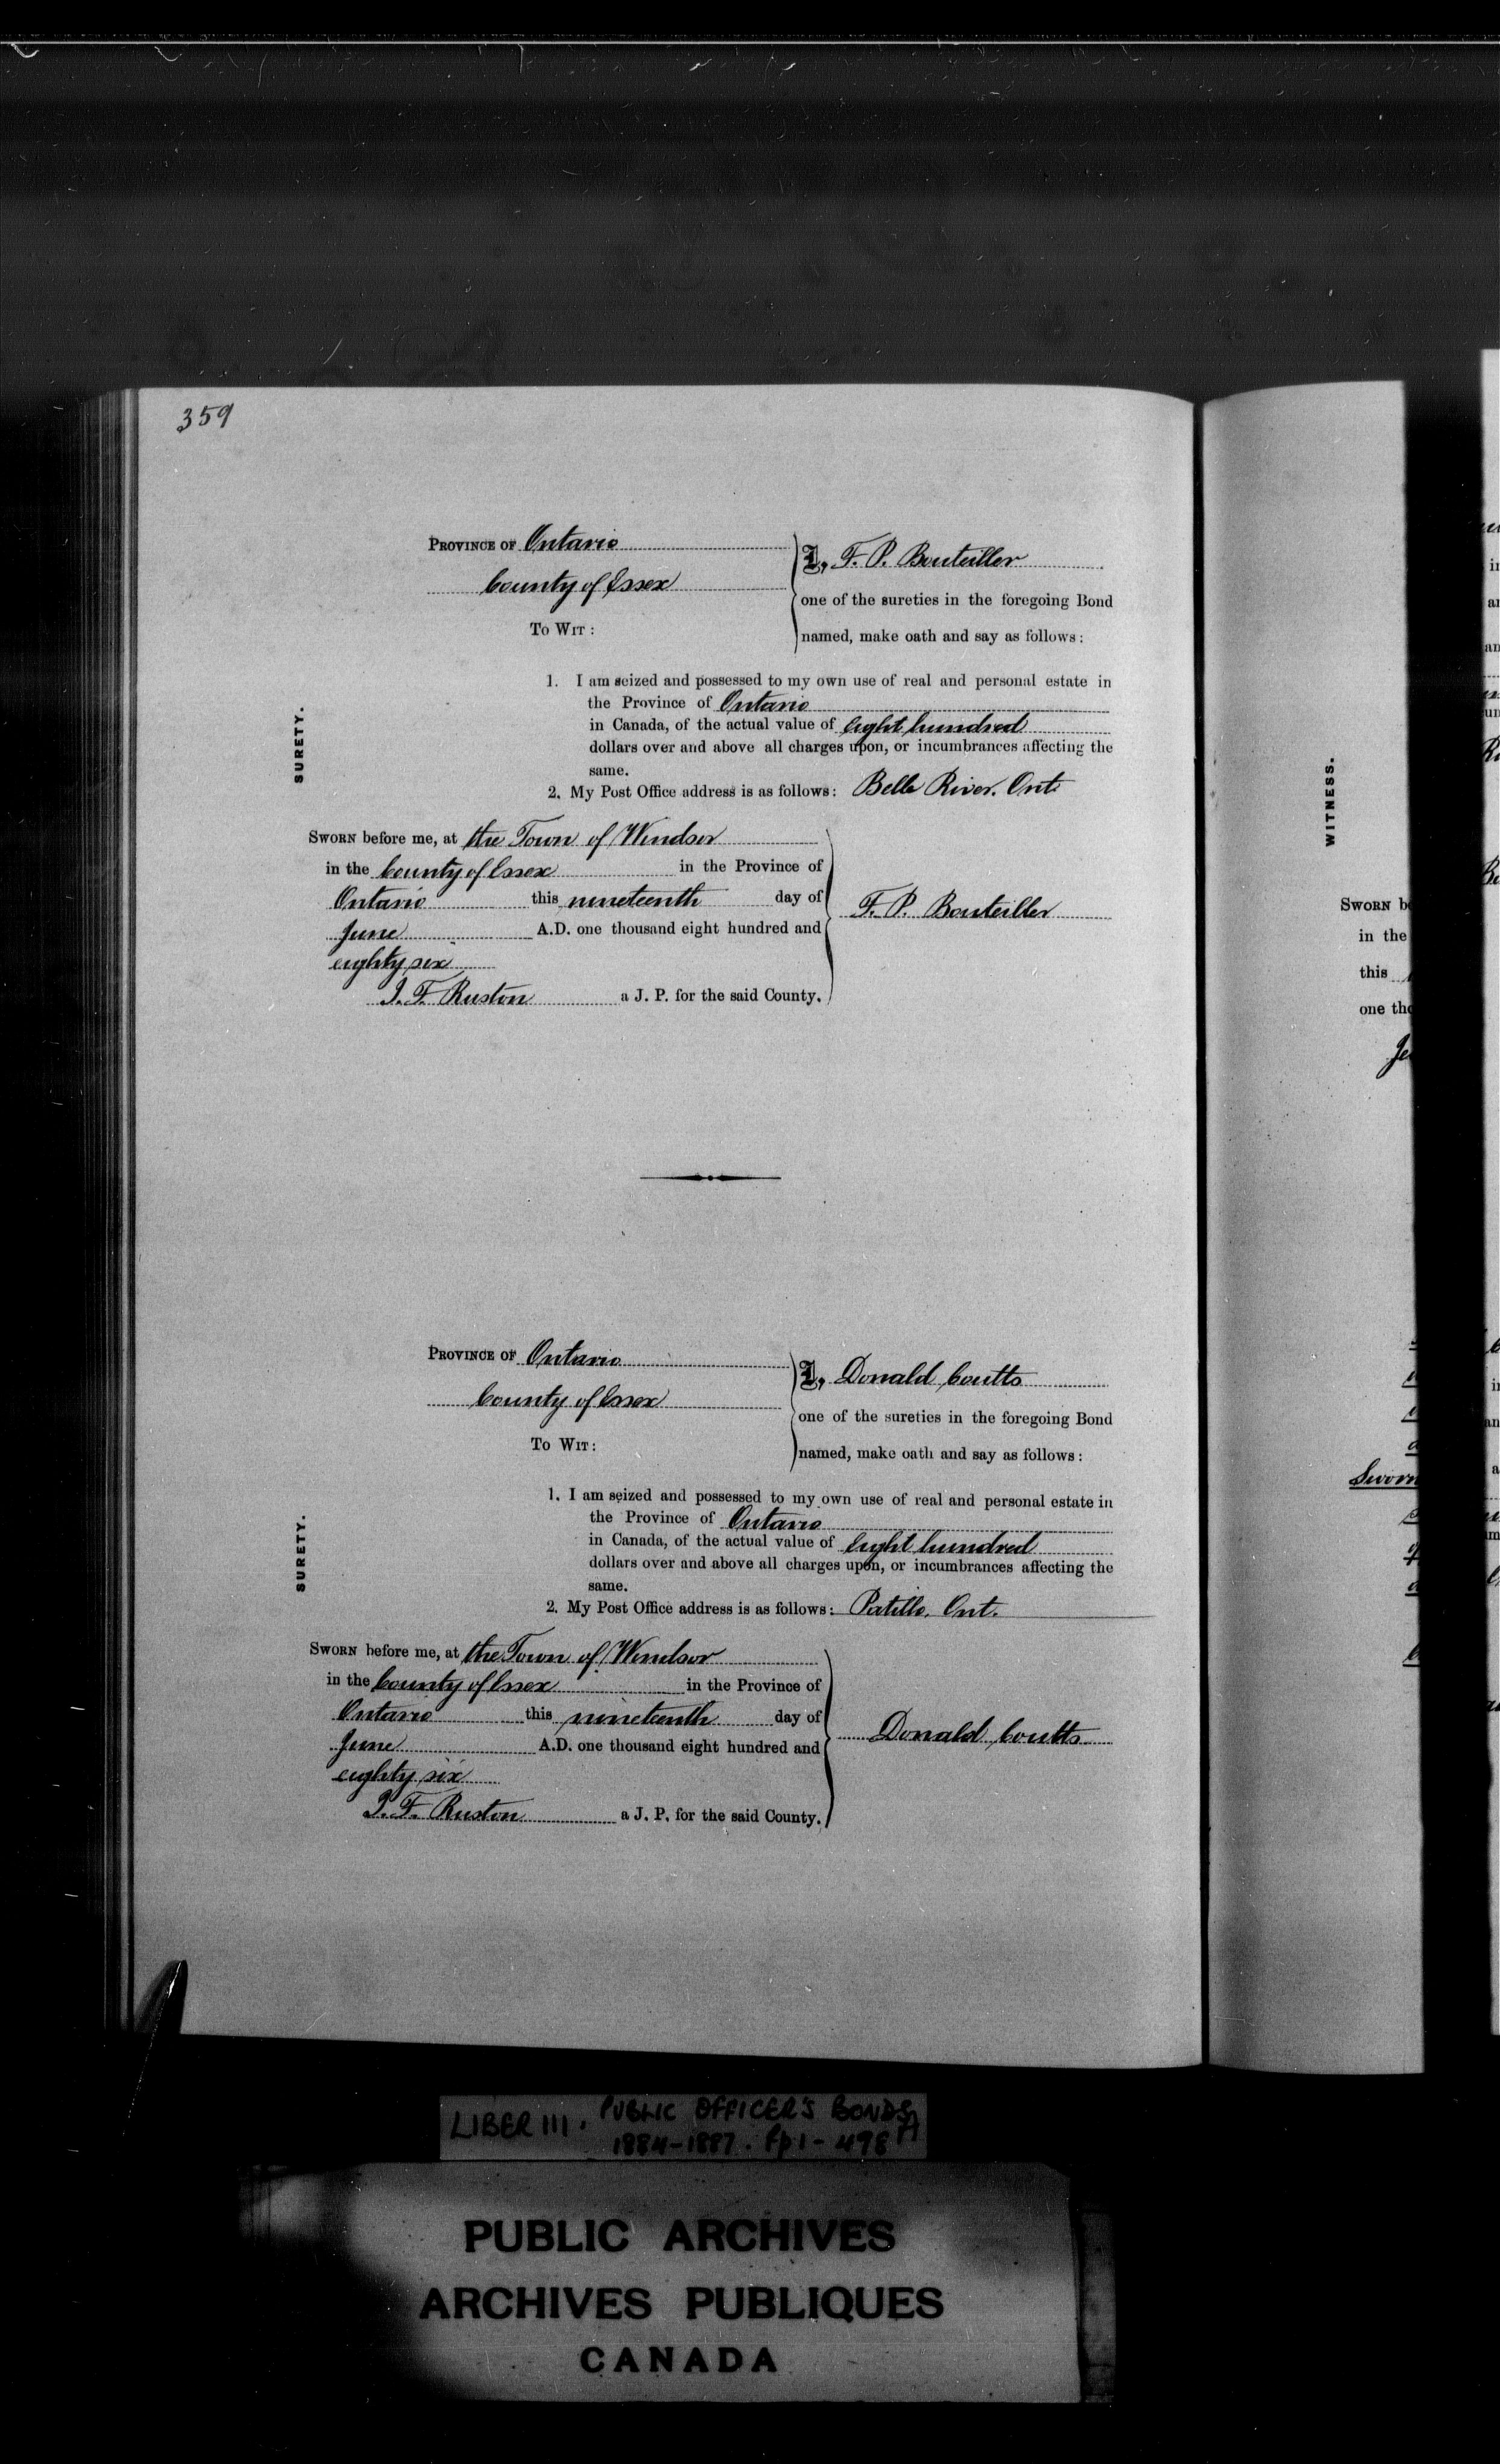 359
PROVINCE OF Ontario
County of Essex
TO WIT:
I, F. P. Bouteiller
one of the sureties in the foregoing Bond
named, make oath and say as follows:
SURETY.
1. I am seized and possessed to my own use of real and personal estate in
the Province of Ontario
in Canada, of the actual value of eight hundred
dollars over and above all charges upon, or incumbrances affecting the
same.
2. My Post Office address is as follows: Belle River. Ont.
SWORN before me, at the Town of Windsor
in the County of Essex in the Province of
Ontario this nineteenth day of
June A.D. one thousand eight hundred and
eighty six
J. F. Ruston a J. P. for the said County.
F. P. Bouteiller
PROVINCE OF Ontario
County of Essex
TO WIT:
I, Donald Coutts
one of the sureties in the foregoing Bond
named, make oath and say as follows:
SURETY.
1. I am seized and possessed to my own use of real and personal estate in
the Province of Ontario
in Canada, of the actual value of eight hundred
dollars over and above all charges upon, or incumbrances affecting the
same.
2. My Post Office address is as follows: Patillo. Ont.
SWORN before me, at the Town of Windsor
in the County of Essex in the Province of
Ontario this nineteenth day of
June A.D. one thousand eight hundred and
eighty six
J. F. Ruston a J. P. for the said County.
Donald Coutts
WITNESS.
SWORN
in the
this
one
Sworn
LIBER III. PUBLIC OFFICER'S BONDS
1884-1887. fp 1-498
PUBLIC ARCHIVES
ARCHIVES PUBLIQUES
CANADA